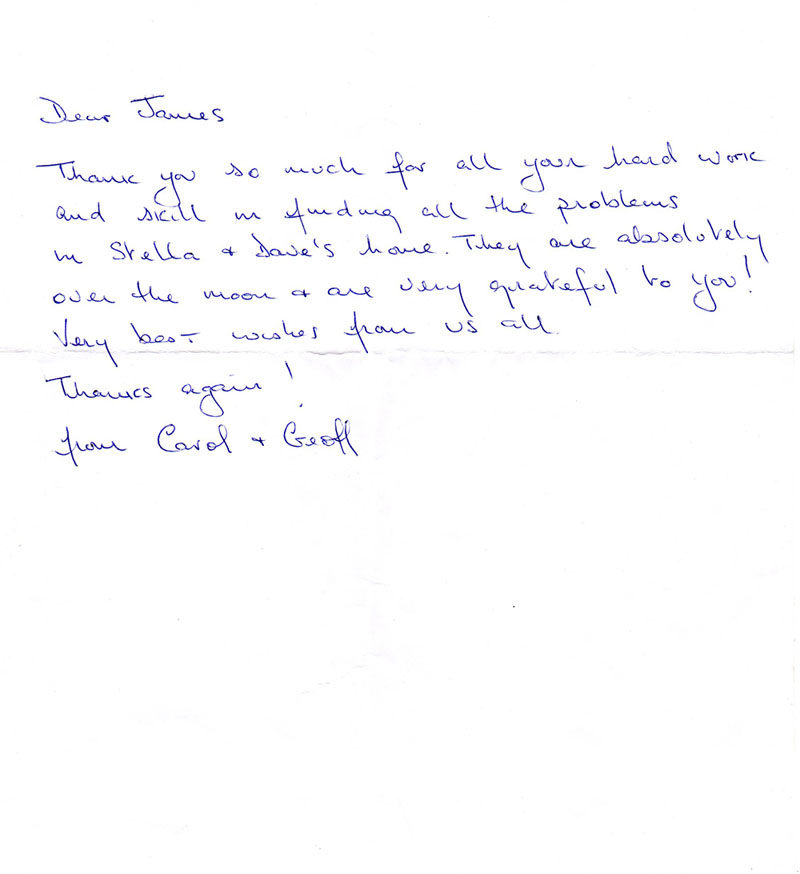 Dear James
Thank you so much for all your hard work
and skill in finding all the problems
in Stella & Dave's home. They are absolutely
over the moon & are very grateful to you!
Very best wishes from us all.
Thanks again!
from Carol & Geoff